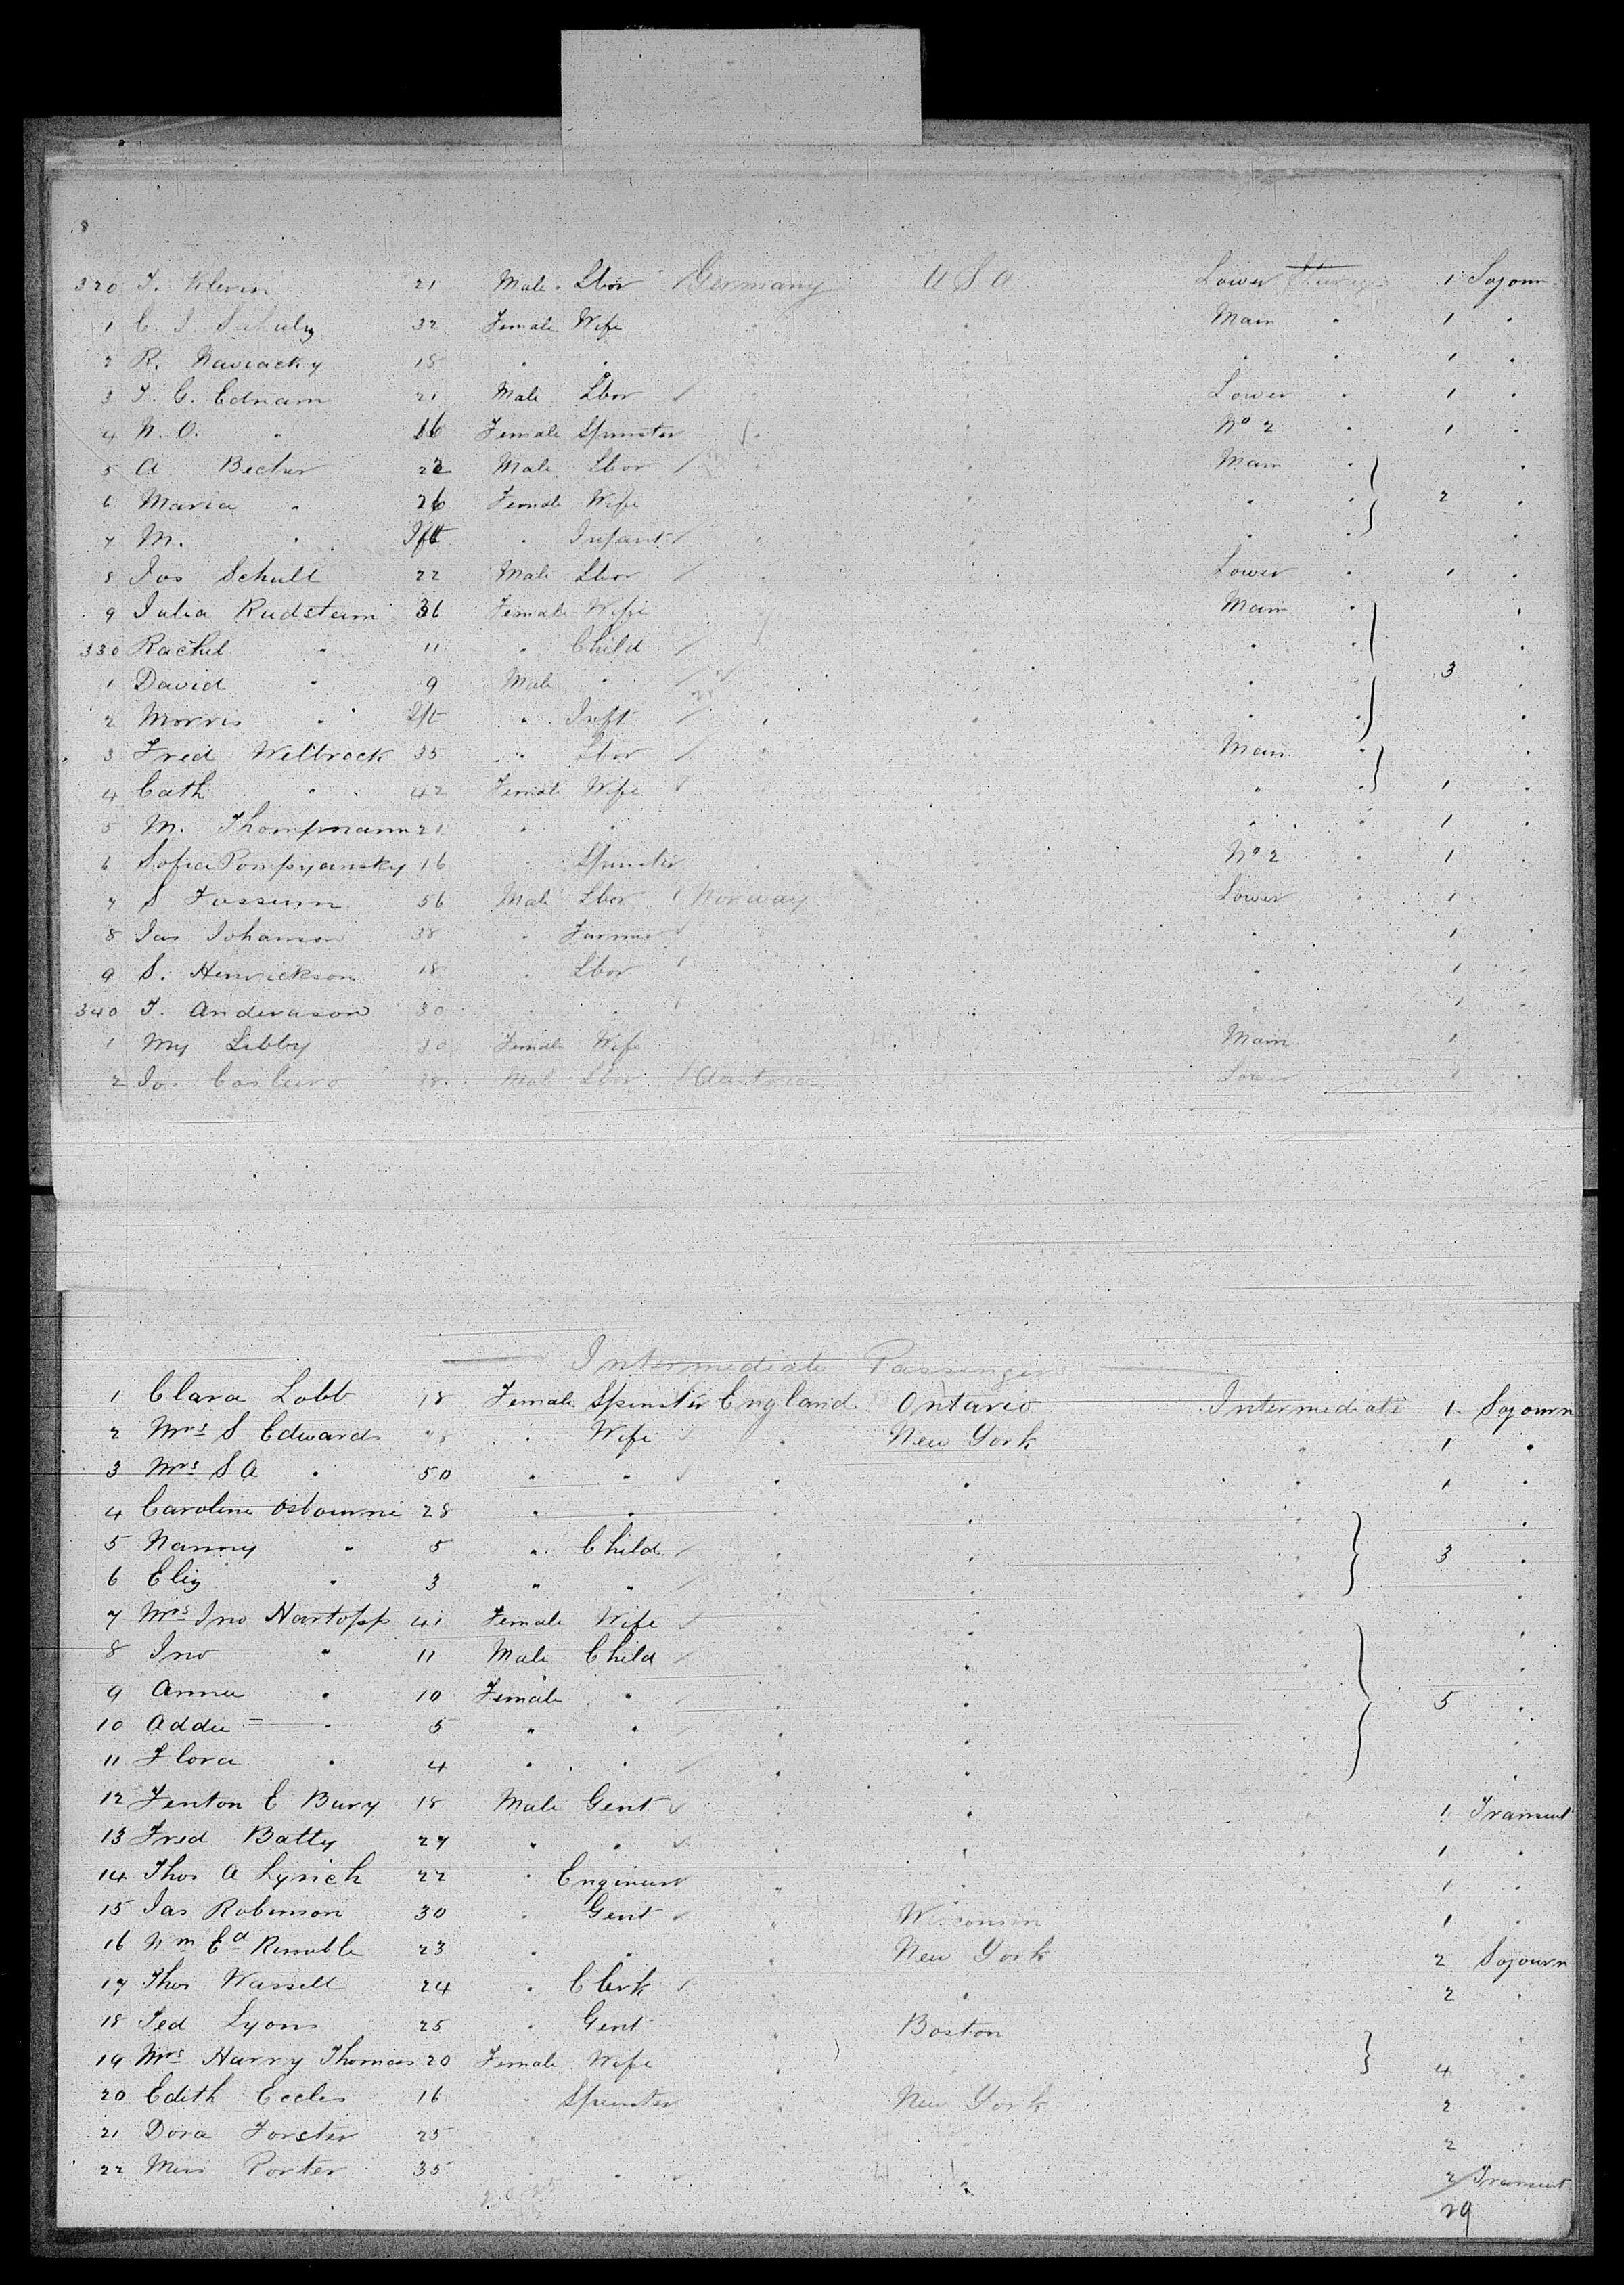 8
320 J. Klevin 21 Male Lbor Germany U S A Lower Steerage 1 Sojourn
1 C. J. Schulz 32 Female Wife " " Main " 1 "
2 R. Naviacky 18 " " " " " " 1 "
3 J. C. Ednam 21 Male Lbor " " Lower " 1 "
4 N. O. " 16 Female Spinster " " No 2 " 1 "
5 A Becker 22 Male Lbor " " Main " "
6 Maria " 26 Female Wife " " " 2 "
7 M. " Ift " Infant " " " " "
8 Jos Schult 22 Male Lbor " " Lower " 1 "
9 Julia Rudsteim 36 Female Wife " Main " "
330 Rachel " 11 " Child " " " "
1 David " 9 Male " " " " 3 "
2 Morris " Ift " Inft " " " " "
3 Fred Wellbrock 35 " Lbor " " Main " "
4 Cath " 42 Female Wife " " " " 1 "
5 M. Thompmann 21 " " " " " 1 "
6 Sofia Pompyansky 16 " Spinster " " No 2 " 1 "
7 S Fossum 56 Male Lbor Norway " Lower " 1 "
8 Jas Johanson 38 " Farmer " " " 1 "
9 S. Henrickson 18 " Lbor " " " 1 "
340 J. Anderason 30 " " " " " 1 "
1 My Libby 30 Female Wife " Main 1 "
2 Jos 38 Male Lbor Austria Lower 1 "
Intermediate Passengers
1 Clara Lobb 18 Female Spinster England Ontario Intermediate 1 Sojourn
2 Mrs S Edwards 28 " Wife " New York " 1 "
3 Mrs S A " 50 " " " " " 1 "
4 Caroline Osbourne 28 " " " " " "
5 Nanny " 5 " Child " " " 3 "
6 Eliz " 3 " " " " "
7 Mrs Jno Hartopp 41 Female Wife " " " "
8 Jno " 11 Male Child " " " "
9 Annie " 10 Female " " " " 5 "
10 Addie " 5 " " " " " "
11 Flora " 4 " " " " " "
12 Fenton E Bury 18 Male Gent " " 1 Transient
13 Fred Batty 27 " " " " " 1 "
14 Thos A Lynch 22 " Engineer " " " 1 "
15 Jas Robinson 30 " Gent " Wisconsin 1 "
16 Wm Ed Rimble 23 " " " New York " 2 Sojourn
17 Thos Wassell 24 " Clerk " " " 2 "
18 Ted Lyons 25 " Gent " Boston "
19 Mrs Harry Thomas 20 Female Wife " " " 4 "
20 Edith Eccles 16 " Spinster " New York " 2 "
21 Dora Forster 25 " " " " " 2 "
22 Miss Porter 35 " " " " 2 Transient
29